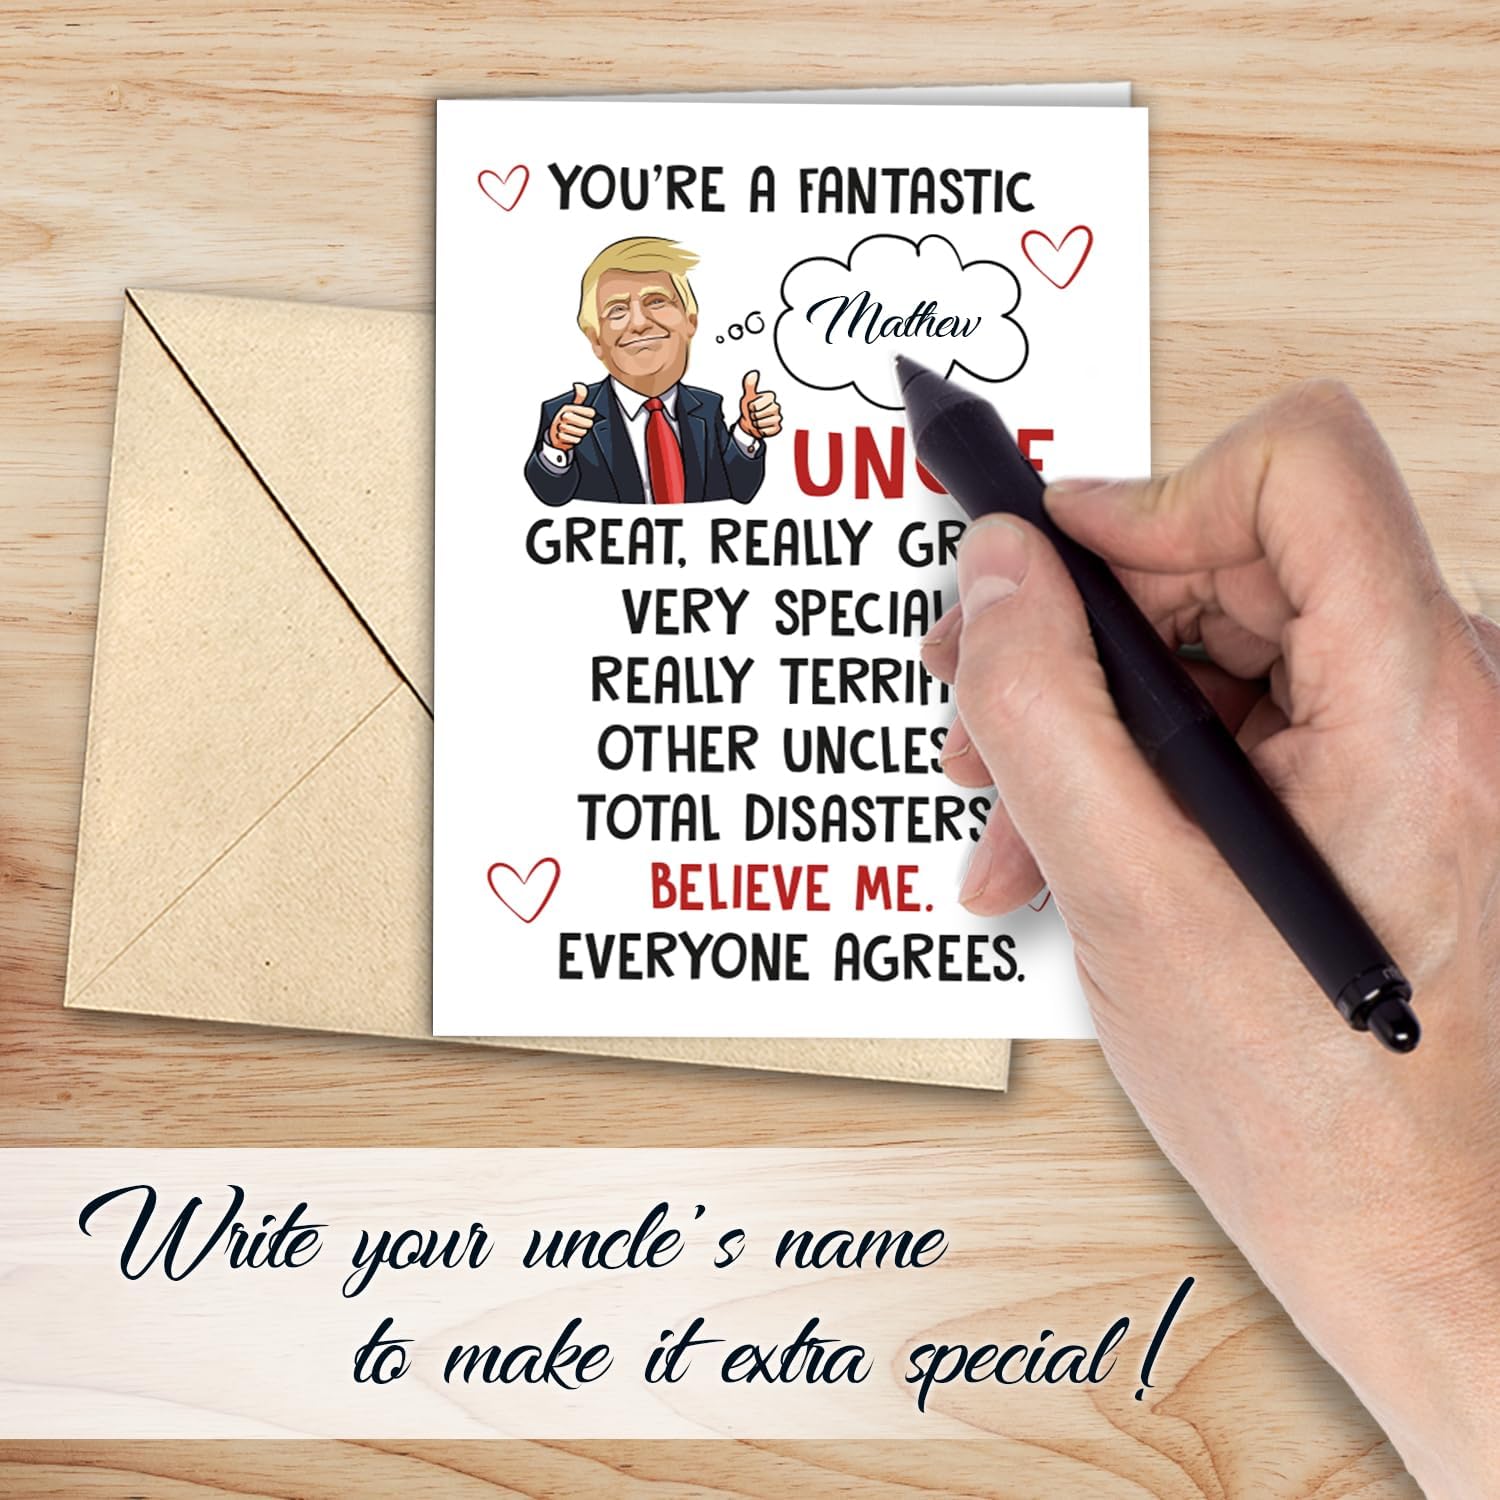 YOU'RE A FANTASTIC
Mathew
UNCLE
GREAT, REALLY
VERY SPECIAL
REALLY
OTHER UNCLES
TOTAL DISASTERS
BELIEVE ME.
EVERYONE AGREES.
Write your uncle's name
to make it extra special!